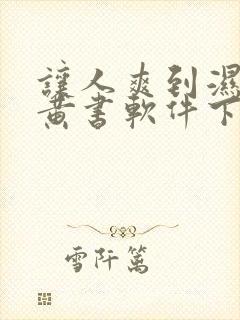 讓人爽到濕
黃書軟件下
雪阡篱